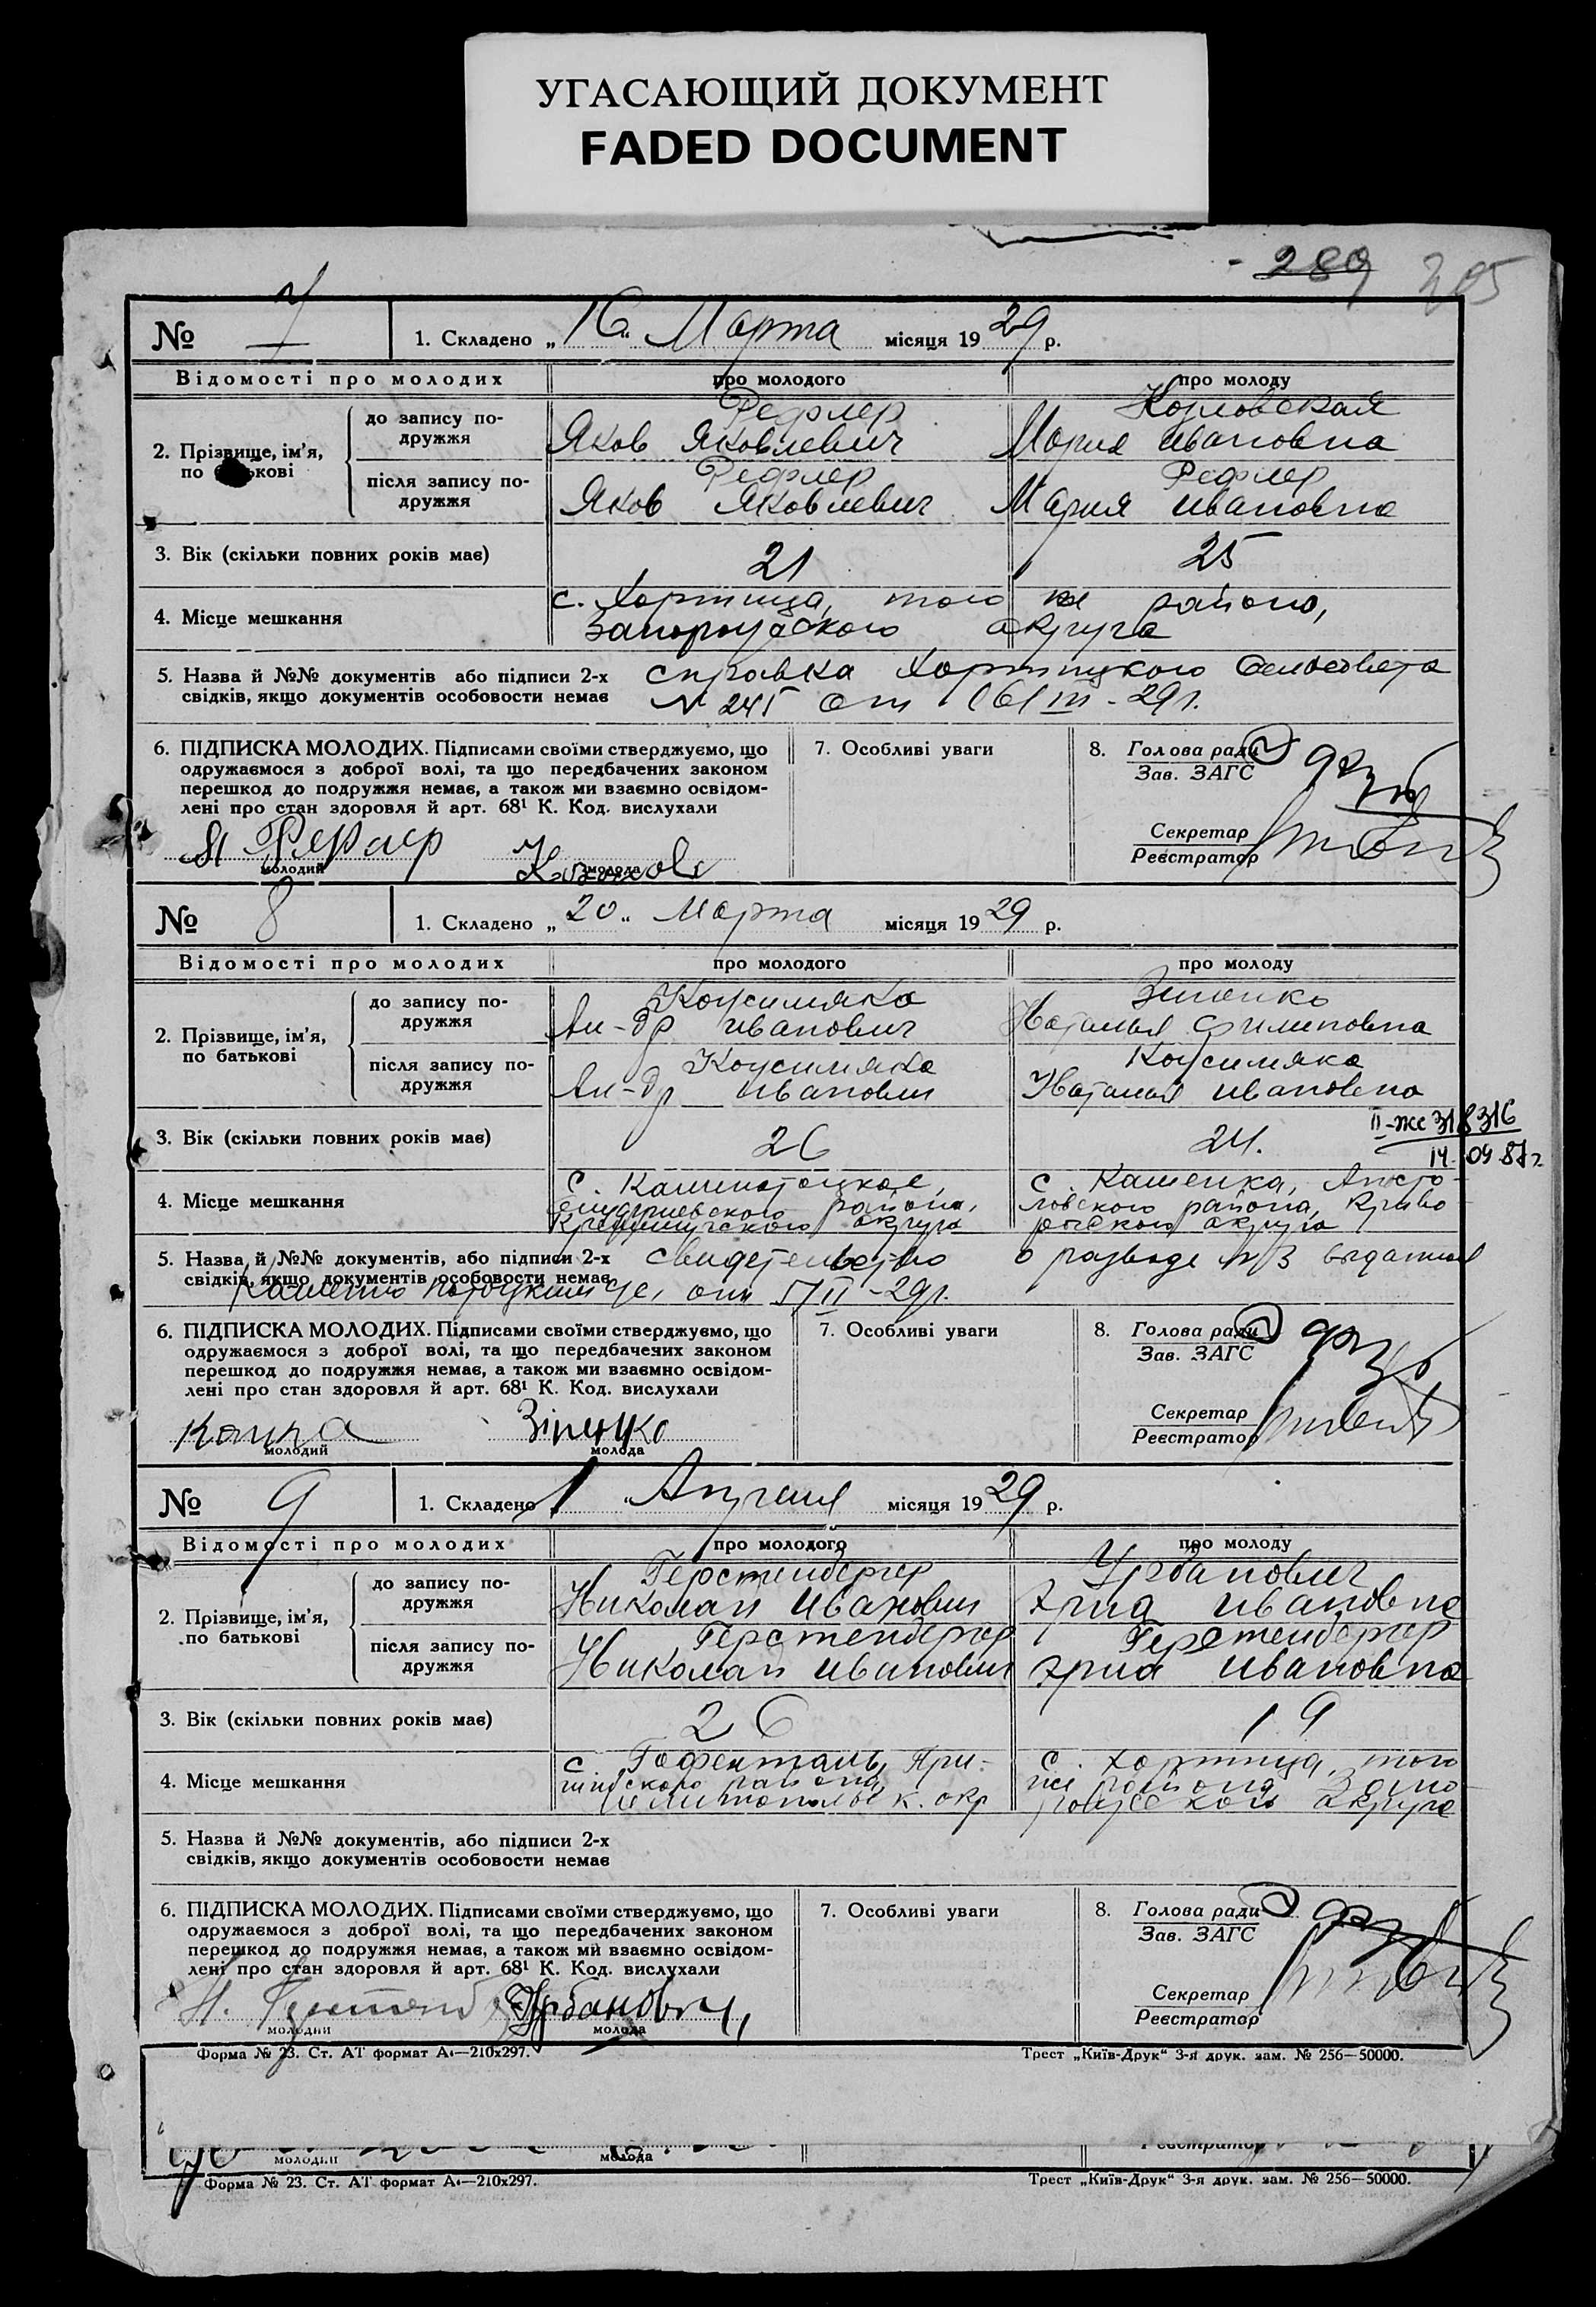 УГАСАЮЩИЙ ДОКУМЕНТ
FADED DOCUMENT
- 289 305
№ 7 1. Складено „16“ Марта місяця 1929 р.
Відомості про молодих про молодого про молоду
2. Прізвище, ім'я, по батькові
до запису подружжя
Рефлер
Яков Яковлевич
Козловская
Мария Ивановна
після запису подружжя
Рефлер
Яков Яковлевич
Рефлер
Мария Ивановна
3. Вік (скільки повних років має) 21 25
4. Місце мешкання с. Хортица, того же района,
Запорожского округа
5. Назва й №№ документів або підписи 2-х справка Хортицкого Сельсовета
свідків, якщо документів особовости немає № 245 от 16/III - 29 г.
6. ПІДПИСКА МОЛОДИХ. Підписами своїми стверджуємо, що
одружаємося з доброї волі, та що передбачених законом
перешкод до подружжя немає, а також ми взаємно освідом-
лені про стан здоровля й арт. 68¹ К. Код. вислухали
Я Рефлер
молодий молода
7. Особливі уваги
8. Голова ради
Зав. ЗАГС
Секретар
Реєстратор
№ 8 1. Складено „20“ Марта місяця 1929 р.
Відомості про молодих про молодого про молоду
2. Прізвище, ім'я,
по батькові
до запису по-
дружжя
Ал-др Иванович
Зиненко
Наталья Филиповна
після запису по-
дружжя
Ал-др Иванович
Наталья Ивановна
3. Вік (скільки повних років має) 26 24.
II-жс 318316
14.09.87г.
4. Місце мешкання
с. Каменопотоцкое,
района,
Кременчугского округа
с. Каменка, Апосто-
ловского района, Криво
рожского округа
5. Назва й №№ документів, або підписи 2-х свидетельство о разводе № 3 выданное
свідків, якщо документів особовости немає
от 5/II - 29 г.
6. ПІДПИСКА МОЛОДИХ. Підписами своїми стверджуємо, що
одружаємося з доброї волі, та що передбачених законом
перешкод до подружжя немає, а також ми взаємно освідом-
лені про стан здоровля й арт. 68¹ К. Код. вислухали
Зіненко
молодий молода
7. Особливі уваги
8. Голова ради
Зав. ЗАГС
Секретар
Реєстратор
№ 9 1. Складено 1 “ Апреля місяця 1929 р.
Відомості про молодих про молодого про молоду
2. Прізвище, ім'я,
по батькові
до запису по-
дружжя
Герстенбергер
Николай Иванович
Урбанович
Эрна Ивановна
після запису по-
дружжя
Герстенбергер
Николай Иванович
Герстенбергер
Эрна Ивановна
3. Вік (скільки повних років має) 26 19
4. Місце мешкання
с. Гофенталь, При-
шибского района,
Мелитопольск. окр
с. Хортица, того
же района Запо
рожского округа
5. Назва й №№ документів, або підписи 2-х
свідків, якщо документів особовости немає
6. ПІДПИСКА МОЛОДИХ. Підписами своїми стверджуємо, що
одружаємося з доброї волі, та що передбачених законом
перешкод до подружжя немає, а також ми взаємно освідом-
лені про стан здоровля й арт. 68¹ К. Код. вислухали
Урбанович
молодий молода
7. Особливі уваги
8. Голова ради
Зав. ЗАГС
Секретар
Реєстратор
Форма № 23. Ст. АТ формат А₄—210х297. Трест „Київ-Друк“ 3-я друк. зам. № 256—50000.
молодий молода Реєстратор
Форма № 23. Ст. АТ формат А₄—210х297. Трест „Київ-Друк“ 3-я друк. зам. № 256—50000.